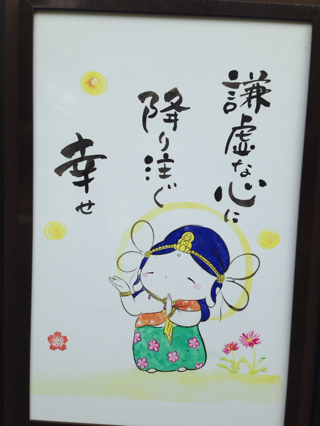 謙虚な心に
降り注ぐ
幸せ